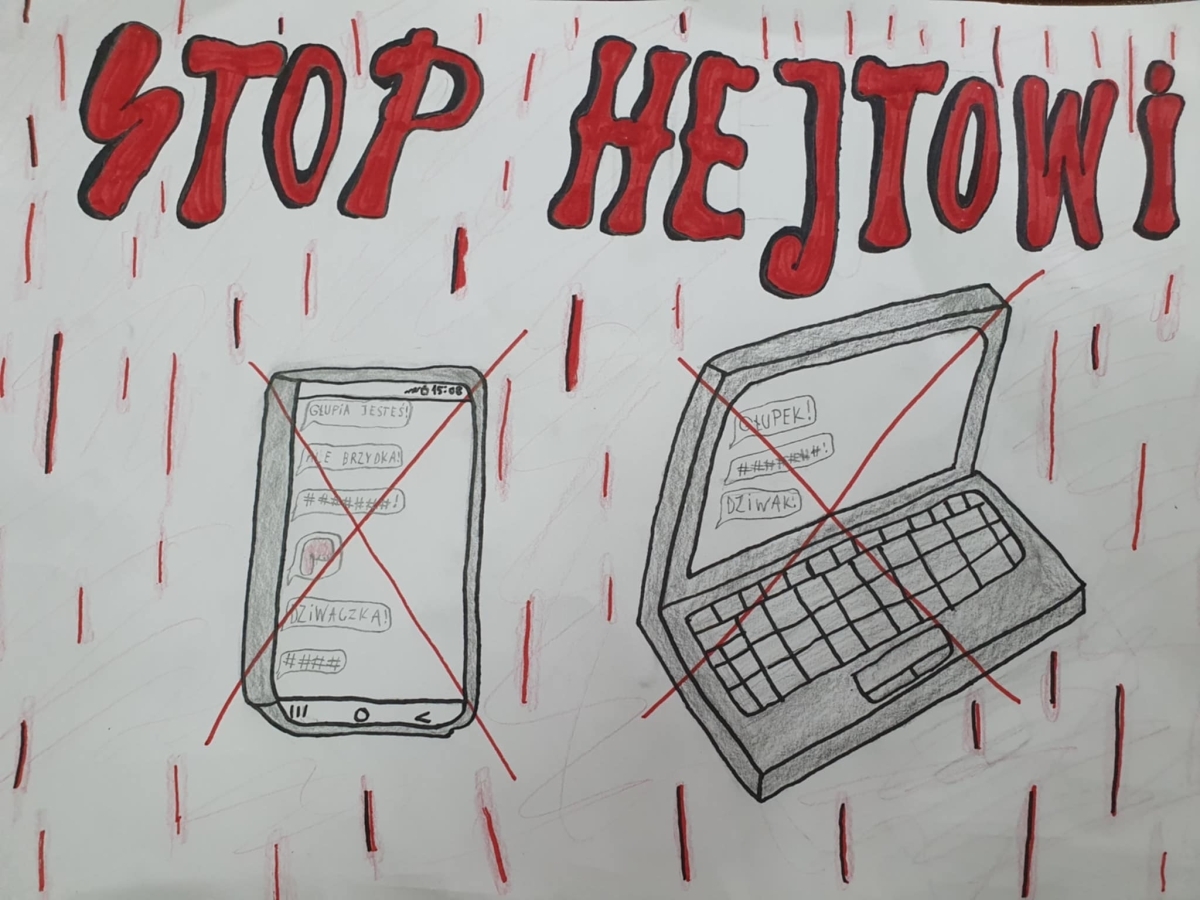 STOP HEJTOWi
15:08
GŁUPiA JESTEŚ!
ALE BRZYDKA!
#######!
DZiWACZKA!
####
GŁUPEK!
######!
DZiWAK!